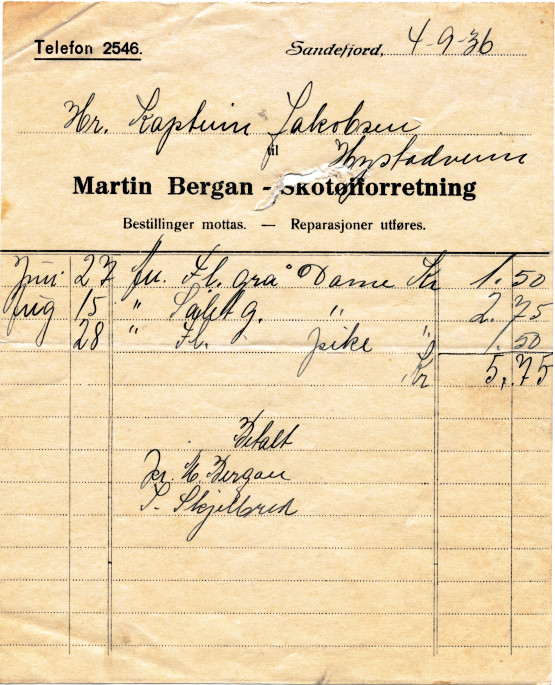 Telefon 2546.
Sandefjord, 4-9-36
Hr. Kaptein Jakobsen
Hystadveien
til
Martin Bergan - Skotøiforretning
Bestillinger mottas. — Reparasjoner utføres.
Juni 27 Fl. grå Dame Kr 1.50
Aug 15 " g. " 2.75
28 " Fl. pike " 1.50
Kr 5.75
Betalt
pr. M. Bergan
S. Skjelbred